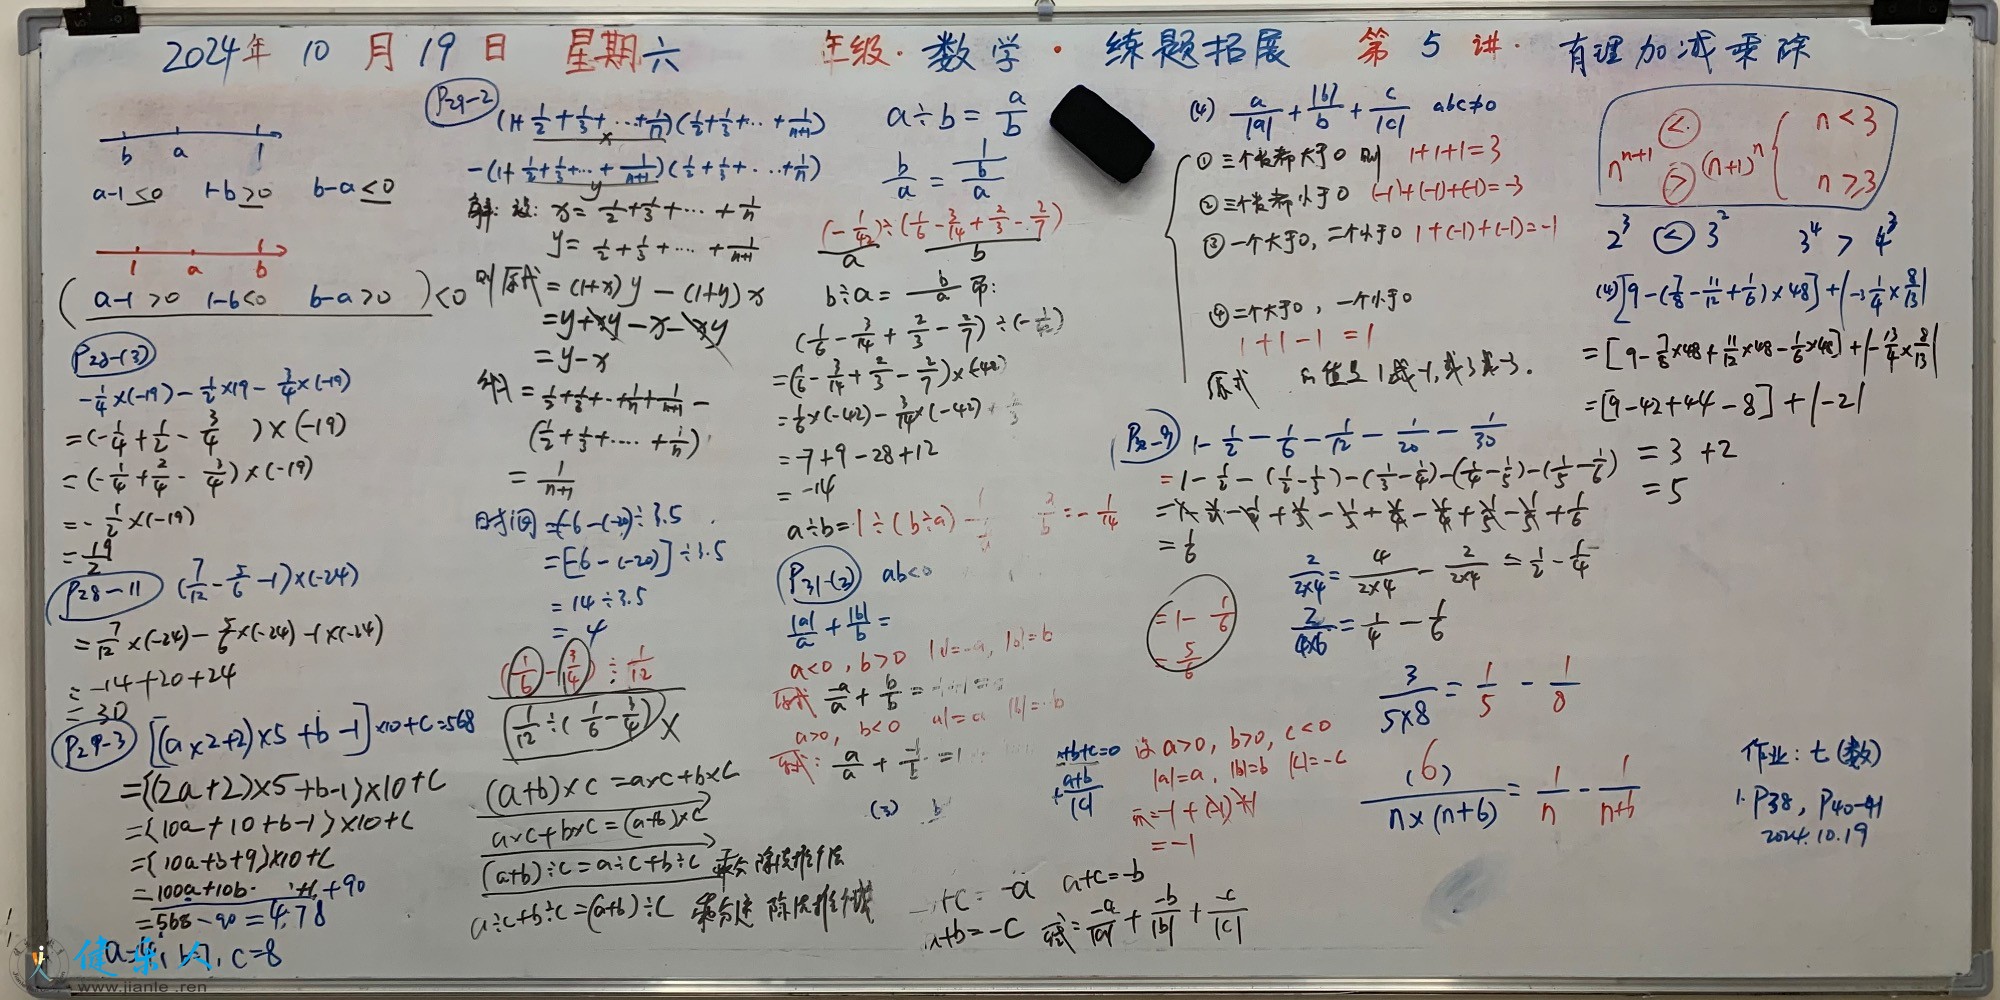 2024年 10 月 19 日 星期六 年级·数学·练题拓展 第 5 讲· 有理加减乘除
b a 1
a-1≤0 1-b≥0 b-a≤0
1 a b
(a-1>0 1-b<0 b-a>0)<0
P28-(3)
-1/4×(-19)-1/2×19-3/4×(-19)
=(-1/4+1/2-3/4)×(-19)
=(-1/4+2/4-3/4)×(-19)
=-1/2×(-19)
=19/2
P28-11 (7/12-5/6-1)×(-24)
=7/12×(-24)-5/6×(-24)-1×(-24)
=-14+20+24
=30
P29-3 [(a×2+2)×5+b-1]×10+c=568
={(2a+2)×5+b-1}×10+c
={10a+10+b-1}×10+c
={10a+b+9}×10+c
=100a+10b+c+90
=568-90=478
a=4, b=7, c=8
P29-2
(1+1/2+1/3+…+1/n)(1/2+1/3+…+1/(n+1))
x
-(1+1/2+1/3+…+1/(n+1))(1/2+1/3+…+1/n)
y
解:设:x=1/2+1/3+…+1/n
y=1/2+1/3+…+1/(n+1)
则原式=(1+x)y-(1+y)x
=y+xy-x-xy
=y-x
=1/2+1/3+…+1/n+1/(n+1)-
(1/2+1/3+…+1/n)
=1/(n+1)
时间=(6-(-20)÷3.5
=[-6-(-20)]÷3.5
=14÷3.5
=4
(1/6-3/14)÷1/12
1/12÷(1/6-3/4) X
(a+b)×c=a×c+b×c
a×c+b×c=(a+b)×c
(a+b)÷c=a÷c+b÷c
a÷c+b÷c=(a+b)÷c
a÷b=a/b
b/a=1/b/a
(-1/42)÷(1/6-3/14+2/3-2/7)
a b
b÷a=b/a 即:
(1/6-3/14+2/3-2/7)÷(-1/42)
=(1/6-3/14+2/3-2/7)×(-42)
=1/6×(-42)-3/14×(-42)+
=-7+9-28+12
=-14
a÷b=1÷(b÷a) a/b=-1/14
P31-(2) ab<0
|a|/a+|b|/b=
a<0,b>0 |a|=-a, |b|=b
原式 -a/a+b/b=
a>0, b<0 |a|=a |b|=-b
原式: a/a+
(3) b
a+b+c=0
a+b
+ |c|
设a>0, b>0, c<0
|a|=a, |b|=b |c|=-c
=-1
+c=-a a+c=-b
a+b=-c 原式=-a/|a|+-b/|b|+-c/|c|
(4) a/|a|+|b|/b+c/|c| abc≠0
①三个发都大于0 则 1+1+1=3
②三个发都小于0 (-1)+(-1)+(-1)=-3
③一个大于0,二个小于0 1+(-1)+(-1)=-1
④二个大于0,一个小于0
1+1-1=1
原式 的值是1或-1,或3或-3.
P32-9 1-1/2-1/6-1/12-1/20-1/30
=1-1/2-(1/2-1/3)-(1/3-1/4)-(1/4-1/5)-(1/5-1/6)
=1-1/2-1/2+1/3-1/3+1/4-1/4+1/5-1/5+1/6
=1/6
=1-1/6
=5/6
2/2×4=4/2×4-2/2×4=1/2-1/4
2/4×6=1/4-1/6
3/5×8=1/5-1/8
(6)/n×(n+6)=1/n-1/n+6
n^(n+1) < > (n+1)^n { n<3
n≥3
2³ < 3² 3⁴ > 4³
(4)[9-(7/8-11/12+1/6)×48]+|-3 1/4×8/13|
=[9-7/8×48+11/12×48-1/6×48]+|-13/4×8/13|
=[9-42+44-8]+|-2|
=3+2
=5
作业:七(数)
1.P38,P40-41
2024.10.19
健乐人
www.jianle.ren